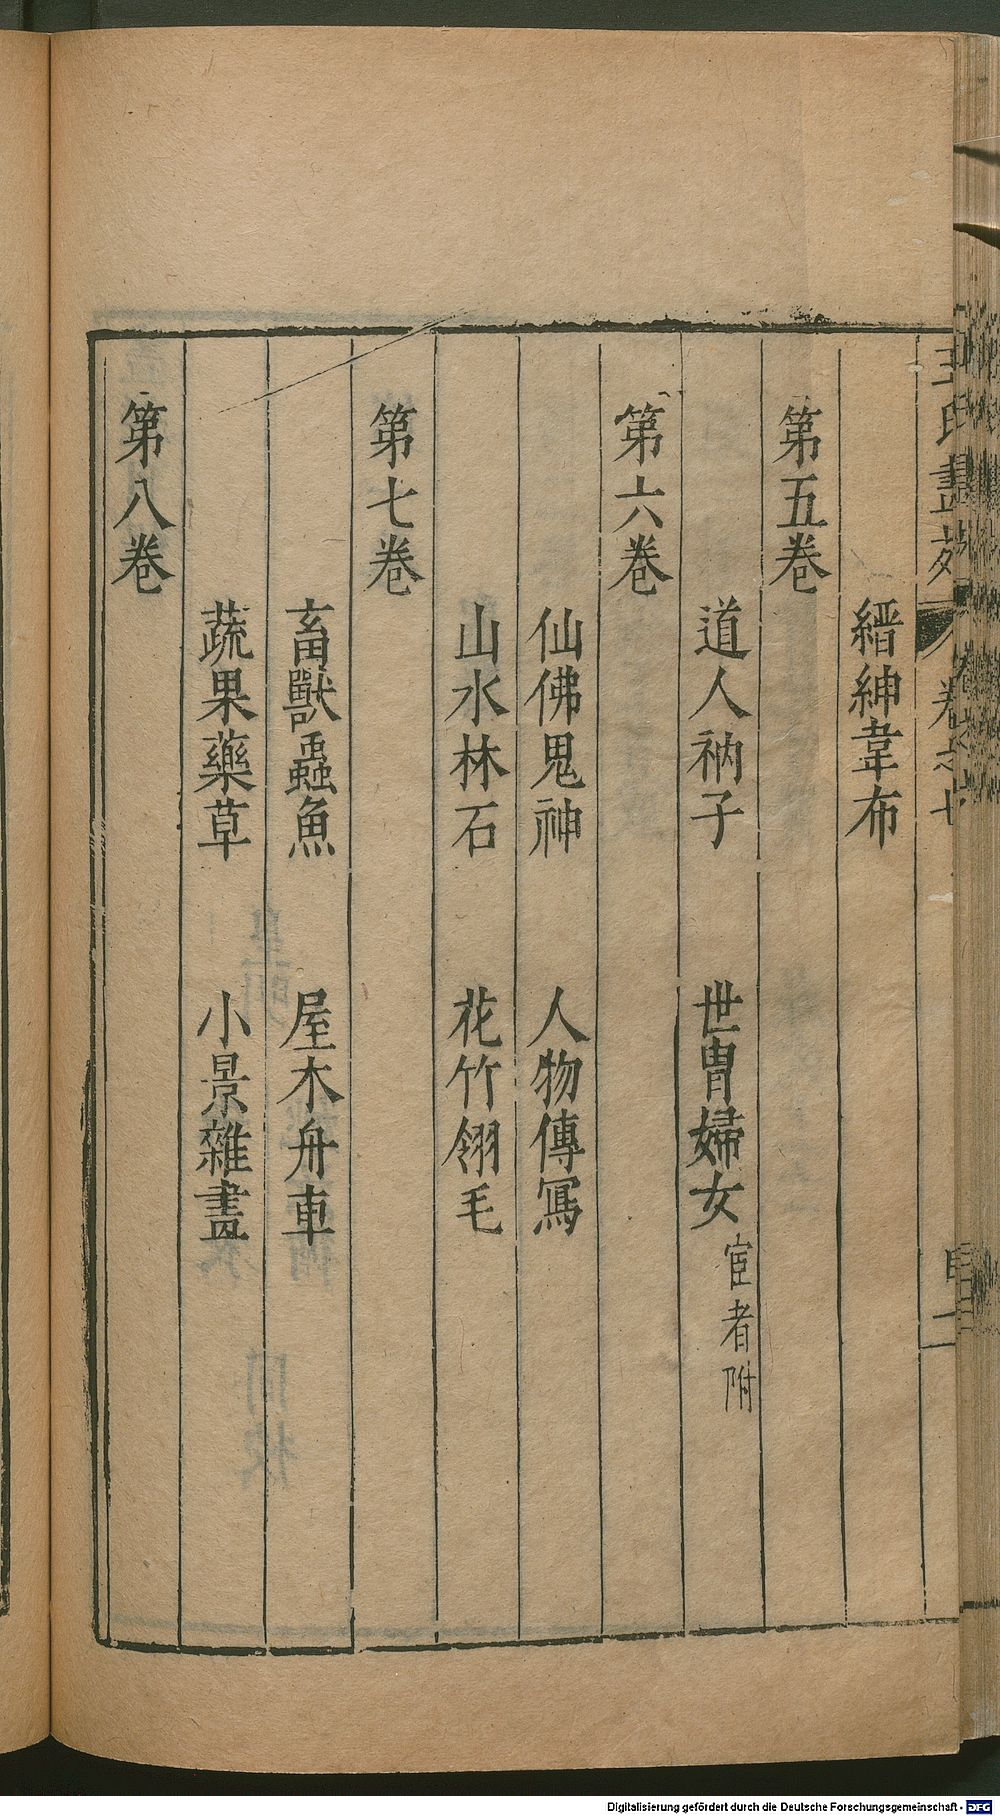 王氏畫苑 卷之七 二
縉紳韋布
第五卷
道人衲子 世胄婦女 宦者附
第六卷
仙佛鬼神 人物傳寫
山水林石 花竹翎毛
第七卷
畜獸蟲魚 屋木舟車
蔬果藥草 小景雜畫
第八卷
Digitalisierung gefördert durch die Deutsche Forschungsgemeinschaft - DFG